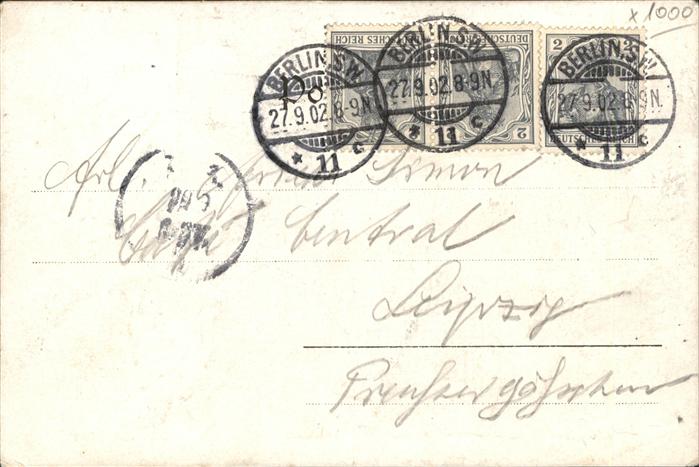 x 1000
DEUTSCHES REICH
DEUTSCHES REICH 2
2 2 DEUTSCHES REICH
BERLIN.S.W. 27.9.02.8-9N. * 11 c
BERLIN.S.W. 27.9.02.8-9N. * 11 c
BERLIN.S.W. 27.9.02.8-9N. * 11 c
Po
Frl. Simon
Café Central
Leipzig
Preussergässchen